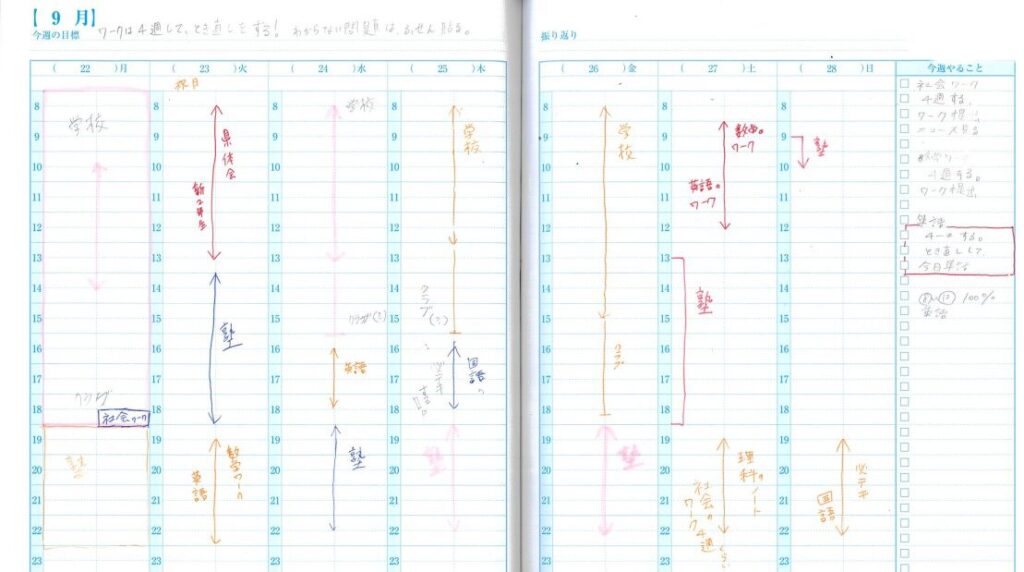 【 9 月】
今週の目標 ワークは4週して、とき直しをする! わからない問題は、ふせん貼る。
振り返り
( 22 )月
( 23 )火
( 24 )水
( 25 )木
( 26 )金
( 27 )土
( 28 )日
今週やること
祝日
8
9
10
11
12
13
14
15
16
17
18
19
20
21
22
23
学校
クラブ
社会ワーク
塾
8
9
10
11
12
13
14
15
16
17
18
19
20
21
22
23
県体会
塾
数学ワーク
英語
8
9
10
11
12
13
14
15
16
17
18
19
20
21
22
23
学校
英語
塾
8
9
10
11
12
13
14
15
16
17
18
19
20
21
22
23
学校
クラブ
国語
塾
8
9
10
11
12
13
14
15
16
17
18
19
20
21
22
23
学校
クラブ
塾
8
9
10
11
12
13
14
15
16
17
18
19
20
21
22
23
ワーク
英語の
ワーク
塾
理科のノート
社会のワーク4週
8
9
10
11
12
13
14
15
16
17
18
19
20
21
22
23
塾
国語
社会ワーク
4週する。
ワーク提出
ニュース見る
数学ワーク
4週する。
ワーク提出
英語
とき直しして
100%
英語